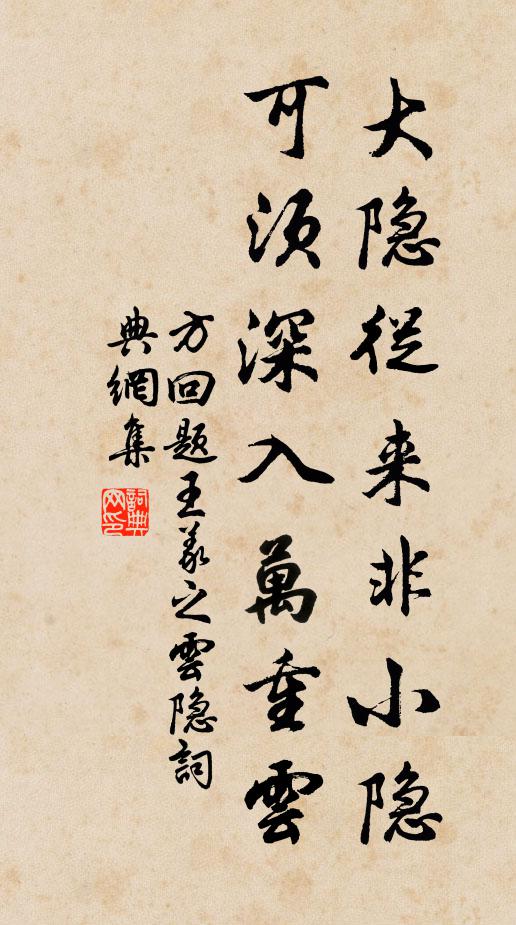 大隐從来非小隐
可须深入萬重雲
方回题王義之雲隐詞
典網集
詞典網印